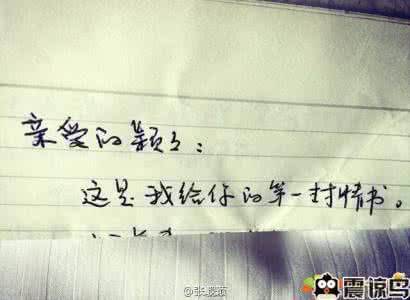 亲爱的颖：
这是我给你的第一封情书。
震惊鸟